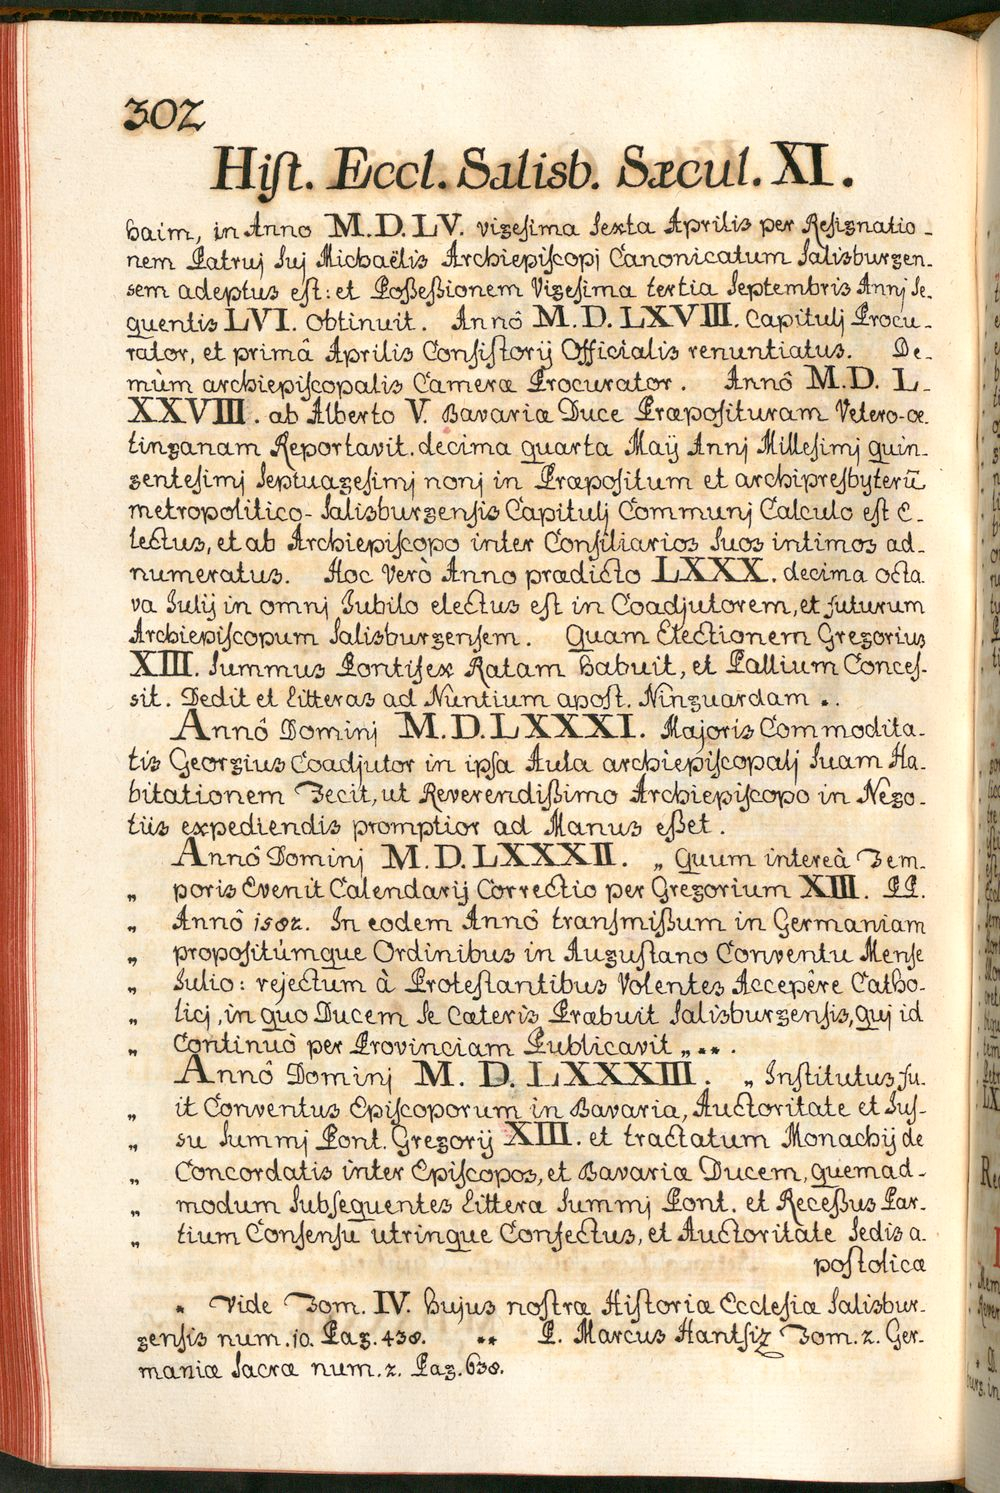 302
Hiſt. Eccl. Salisb. Sæcul. XI.
haim, in Anno M.D.LV. vigeſima ſexta Aprilis per Reſignatio-
nem Patruj ſuj Michaëlis Archiepiſcopj Canonicatum Salisburgen-
sem adeptus eſt: et Poßeßionem Vigeſima tertia Septembris Annj ſe-
quentis LVI. obtinuit. Annô M.D.LXVIII. Capitulj Procu-
rator, et primâ Aprilis Conſiſtorij Officialis renuntiatus. De-
mùm archiepiſcopalis Cameræ Procurator. Annô M.D.L-
XXVIII. ab Alberto V. Bavariæ Duce Præpoſituram Vetero-œ-
tinganam Reportavit. decima quarta Maÿ Annj Milleſimj quin-
genteſimj ſeptuageſimj nonj in Præpoſitum et archipreſbyterũ
metropolitico-Salisburgenſis Capitulj Communj Calculo eſt e-
lectus, et ab Archiepiſcopo inter Conſiliarios ſuos intimos ad-
numeratus. Hoc Verò Anno prædicto LXXX. decima octa-
va Julij in omnj Jubilo electus eſt in Coadjutorem, et futurum
Archiepiſcopum Salisburgenſem. Quam Electionem Gregorius
XIII. ſummus Pontifex Ratam habuit, et Pallium Conceſ-
sit. Dedit et litteras ad Nuntium apoſt. Ninguardam *.
Annô Dominj M.D.LXXXI. Majoris Commodita-
tis Georgius Coadjutor in ipſa Aula archiepiſcopalj ſuam Ha-
bitationem Fecit, ut Reverendißimo Archiepiſcopo in Nego-
tiis expediendis promptior ad Manus eßet.
Annô Dominj M.D.LXXXII. „ Quum intereà Tem-
„ poris Evenit Calendarij Correctio per Gregorium XIII. PP.
„ Annô 1582. In eodem Annô tranſmißum in Germaniam
„ propoſitúmque Ordinibus in Auguſtano Conventu Menſe
„ Julio: rejectum à Proteſtantibus Volentes Accepêre Catho-
„ licj, in quo Ducem ſe Cæteris Præbuit Salisburgenſis, quj id
„ Continuò per Provinciam Publicavit „ **.
Annô Dominj M.D.LXXXIII. „ Inſtitutus fu-
„ it Conventus Epiſcoporum in Bavaria, Auctoritate et Juſ-
„ su ſummj Pont. Gregorij XIII. et tractatum Monachij de
„ Concordatis inter Epiſcopos, et Bavariæ Ducem, quemad-
„ modum ſubſequentes litteræ ſummj Pont. et Receßus Par-
„ tium Conſenſu utrinque Confectus, et Auctoritate ſedis a-
poſtolicæ
* Vide Tom. IV. hujus noſtræ Hiſtoriæ Eccleſiæ Salisbur-
genſis num. 10. Pag. 438. ** P. Marcus Hantſiz Tom. 2. Ger-
maniæ Sacræ num. 2. Pag. 638.